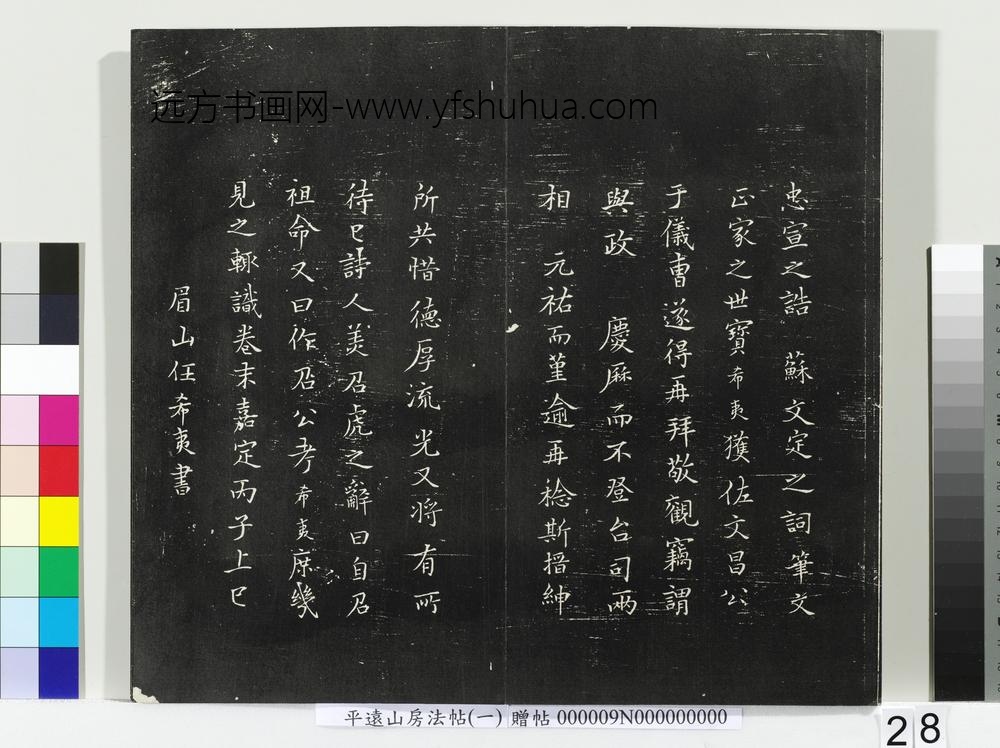 远方书画网-www.yfshuhua.com
忠宣之誥 蘇文定之詞筆文
正家之世寶希夷獲佐文昌公
于儀曹遂得再拜敬觀竊謂
與政 慶厤而不登台司兩
相 元祐而堇逾再稔斯搢紳
所共惜德厚流光又將有所
待已詩人美召虎之辭曰自召
祖命又曰作召公考希夷庶幾
見之輒識卷末嘉定丙子上巳
眉山任希夷書
平遠山房法帖(一) 贈帖 000009N000000000
28